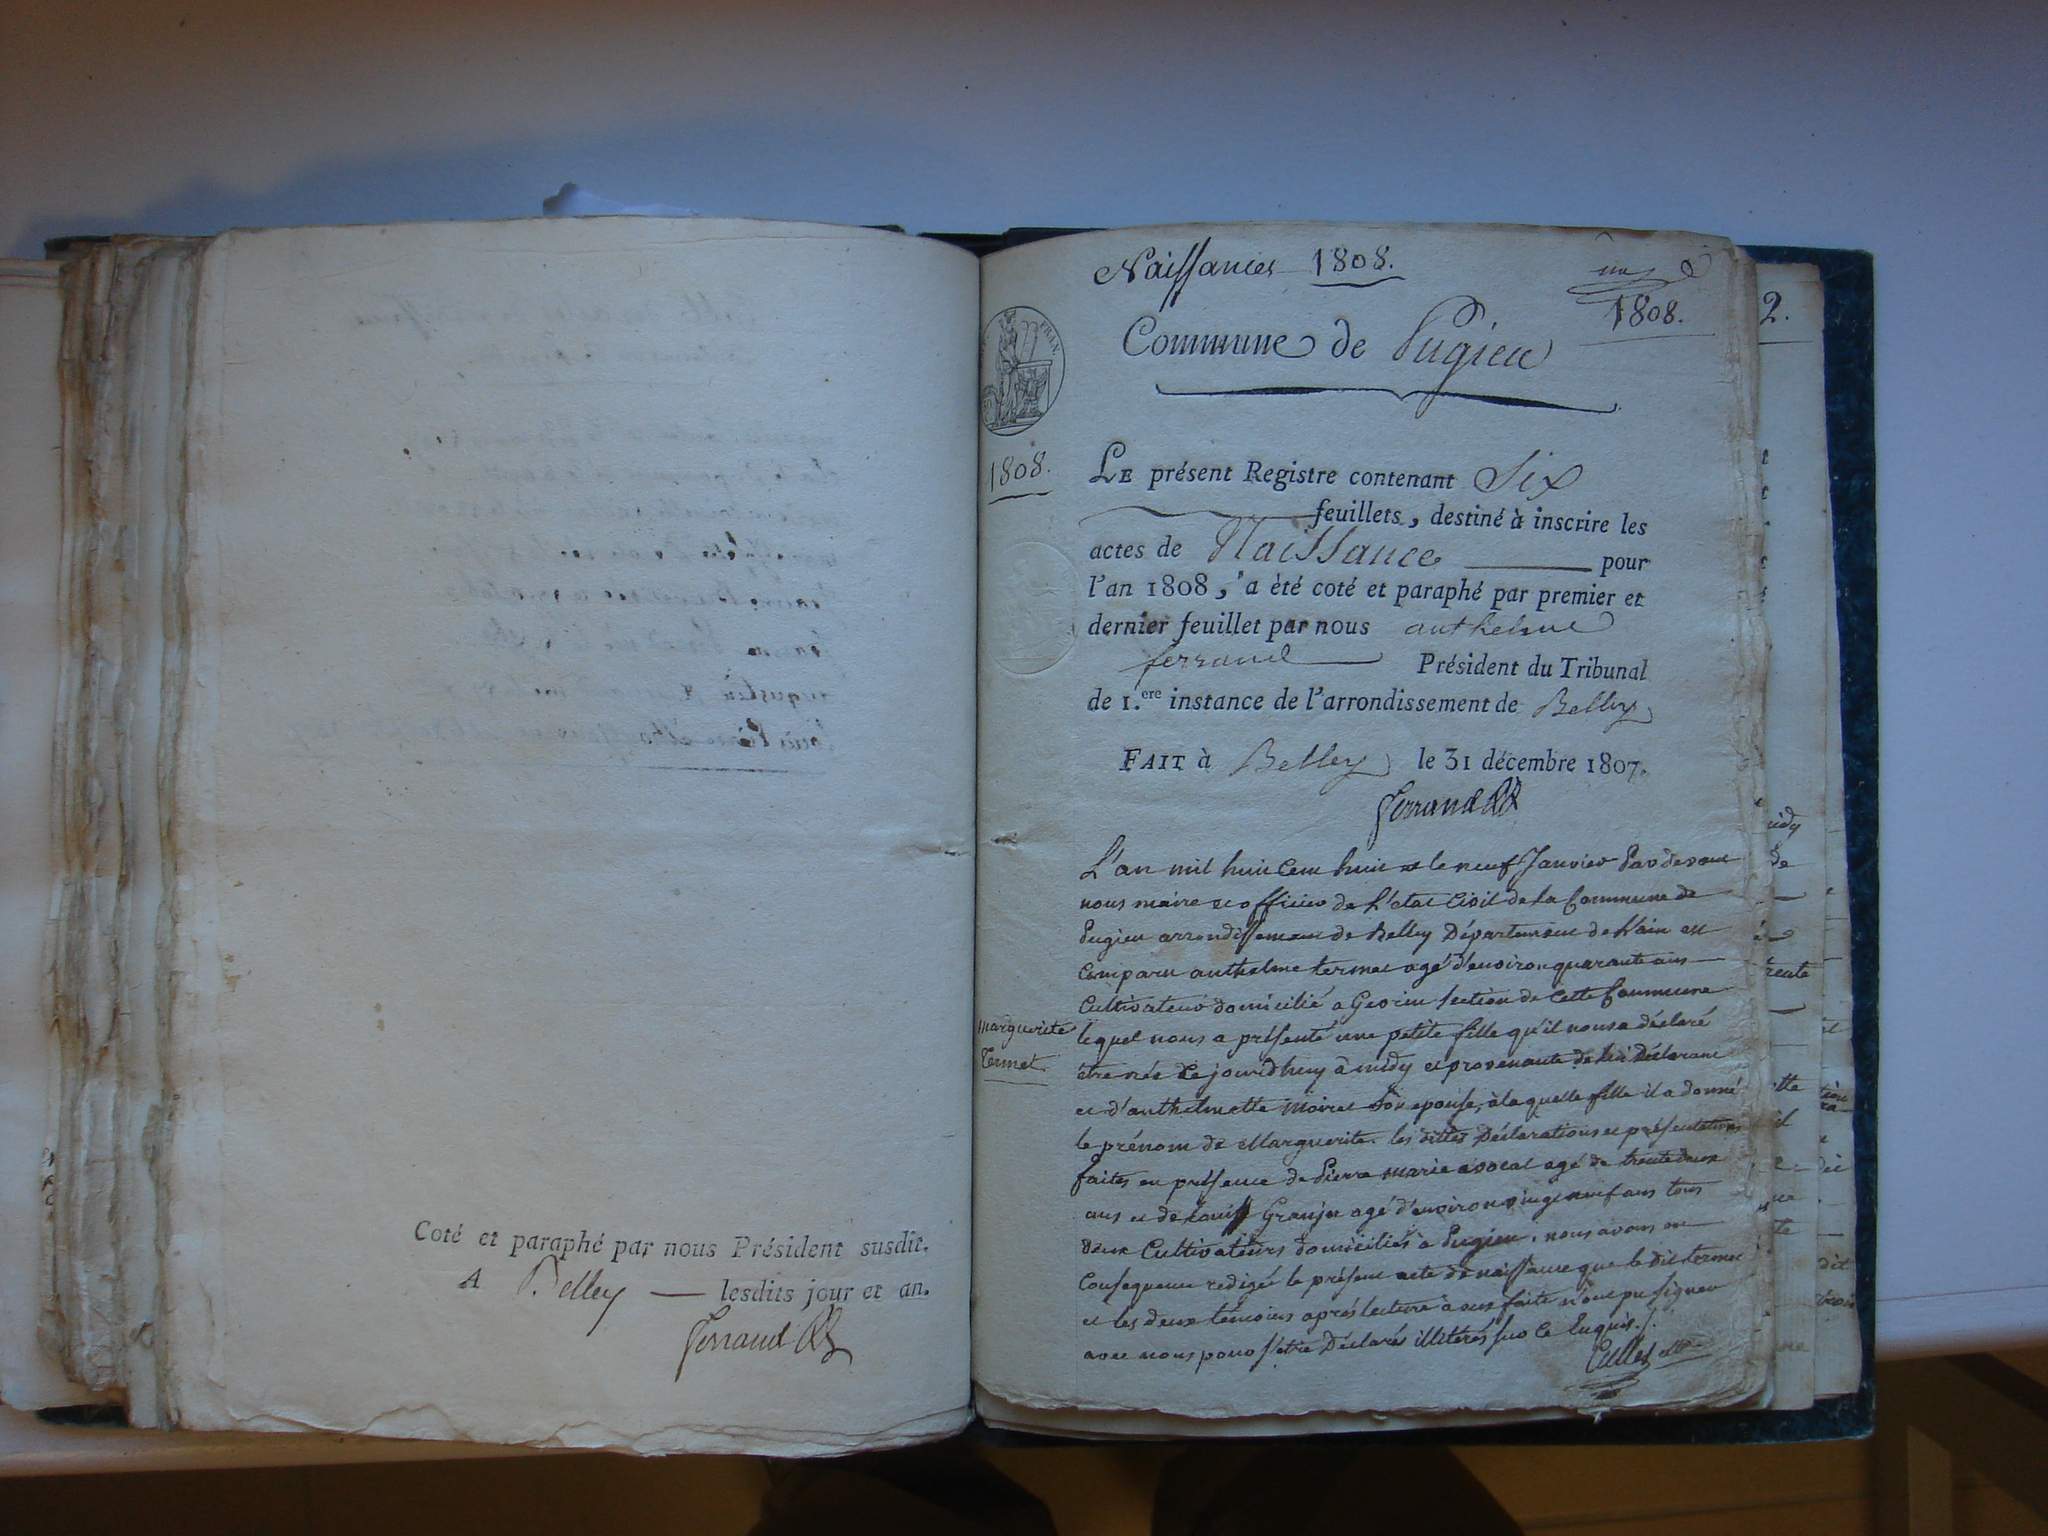 Coté et paraphé par nous Président susdit.
A Belley lesdits jour et an.
ferrand
Naissances 1808.
1808.
Commune de Pugieu
FRAN.
1808.
LE présent Registre contenant Six
feuillets, destiné à inscrire les
actes de Naissance pour
l'an 1808, a été coté et paraphé par premier et
dernier feuillet par nous anthelme
ferrand Président du Tribunal
de 1.ere instance de l'arrondissement de Belley
FAIT à Belley le 31 décembre 1807.
ferrand
L'an mil huit Cent huit et le neuf Janvier Pardevant
nous maire et officier de L'etat Civil de la Commune de
Pugieu arrondissement de Belley Département de L'ain est
Comparu anthelme termet agé d'environ quarante ans
Cultivateur domicilié a Gevrin section de Cette Commune
Marguerite
Termet.
lequel nous a présenté une petite fille qu'il nous a déclaré
être née Le jourdhuy à midy et provenante de lui Déclarant
et d'anthelmette Moiret Son epouse, à laquelle fille il a donné
le prénom de Marguerite. les dittes Déclarations et présentations
faites en présence de Pierre marie avocat agé de trente deux
ans et de Louis Granju agé d'environ vingt neuf ans tous
deux Cultivateurs domiciliés a Pugieu. nous avons en
Consequence redigé le présent acte de naissance que le dit termet
et les deux témoins après lecture à eux faite n'ont pu signer
avec nous pour s'être Déclarés illitérés sur Ce Enquis./.
2.